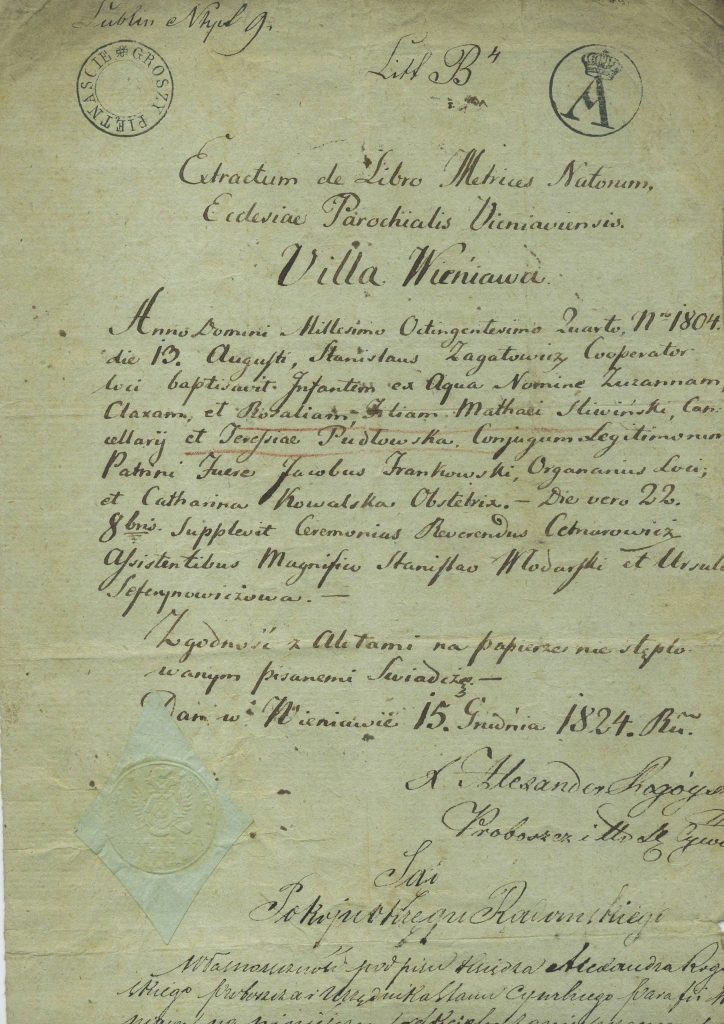 Lublin
9.
GROSZY PIĘTNAŚCIE
Litt B⁴
A
Extractum de Libro Metrices Natorum,
Ecclesiae Parochialis Vieniaviensis.
Villa Wieniawa.
Anno Domini Millesimo Octingentesimo Quarto, Nro 1804.
die 13. Augusti, Stanislaus Zagatowicz Cooperator
loci baptisavit Infantem ex Aqua Nomine Zuzannam,
Claram, et Rosaliam Filiam Mathaei Sliwiński, Can-
cellarij et Teressiae Pudlowska, Conjugum Legitimorum
Patrini Fuere Jacobus Frankowski, Organarius Loci;
et Catharina Kowalska Obstetrix. — Die vero 22.
8bris Supplevit Ceremonias Reverendus Cetnarowicz
Assistentibus Magnifico Stanislao Wlodarski et Ursula
Seferynowiczowa. —
Zgodność z Aktami na papierze nie stęplo-
wanym pisanemi Swiadczę. —
Dan w Wieniawie 15. Grudnia 1824. Ru.
X Alexander
Proboszcz i
Pokoju Okręgu
Własnoręczność podpisu Xiędza Alexandra Rog
skiego proboszcza i Urzędnika Stanu Cywilnego parafii